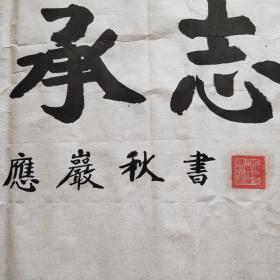 承志
應巖秋書